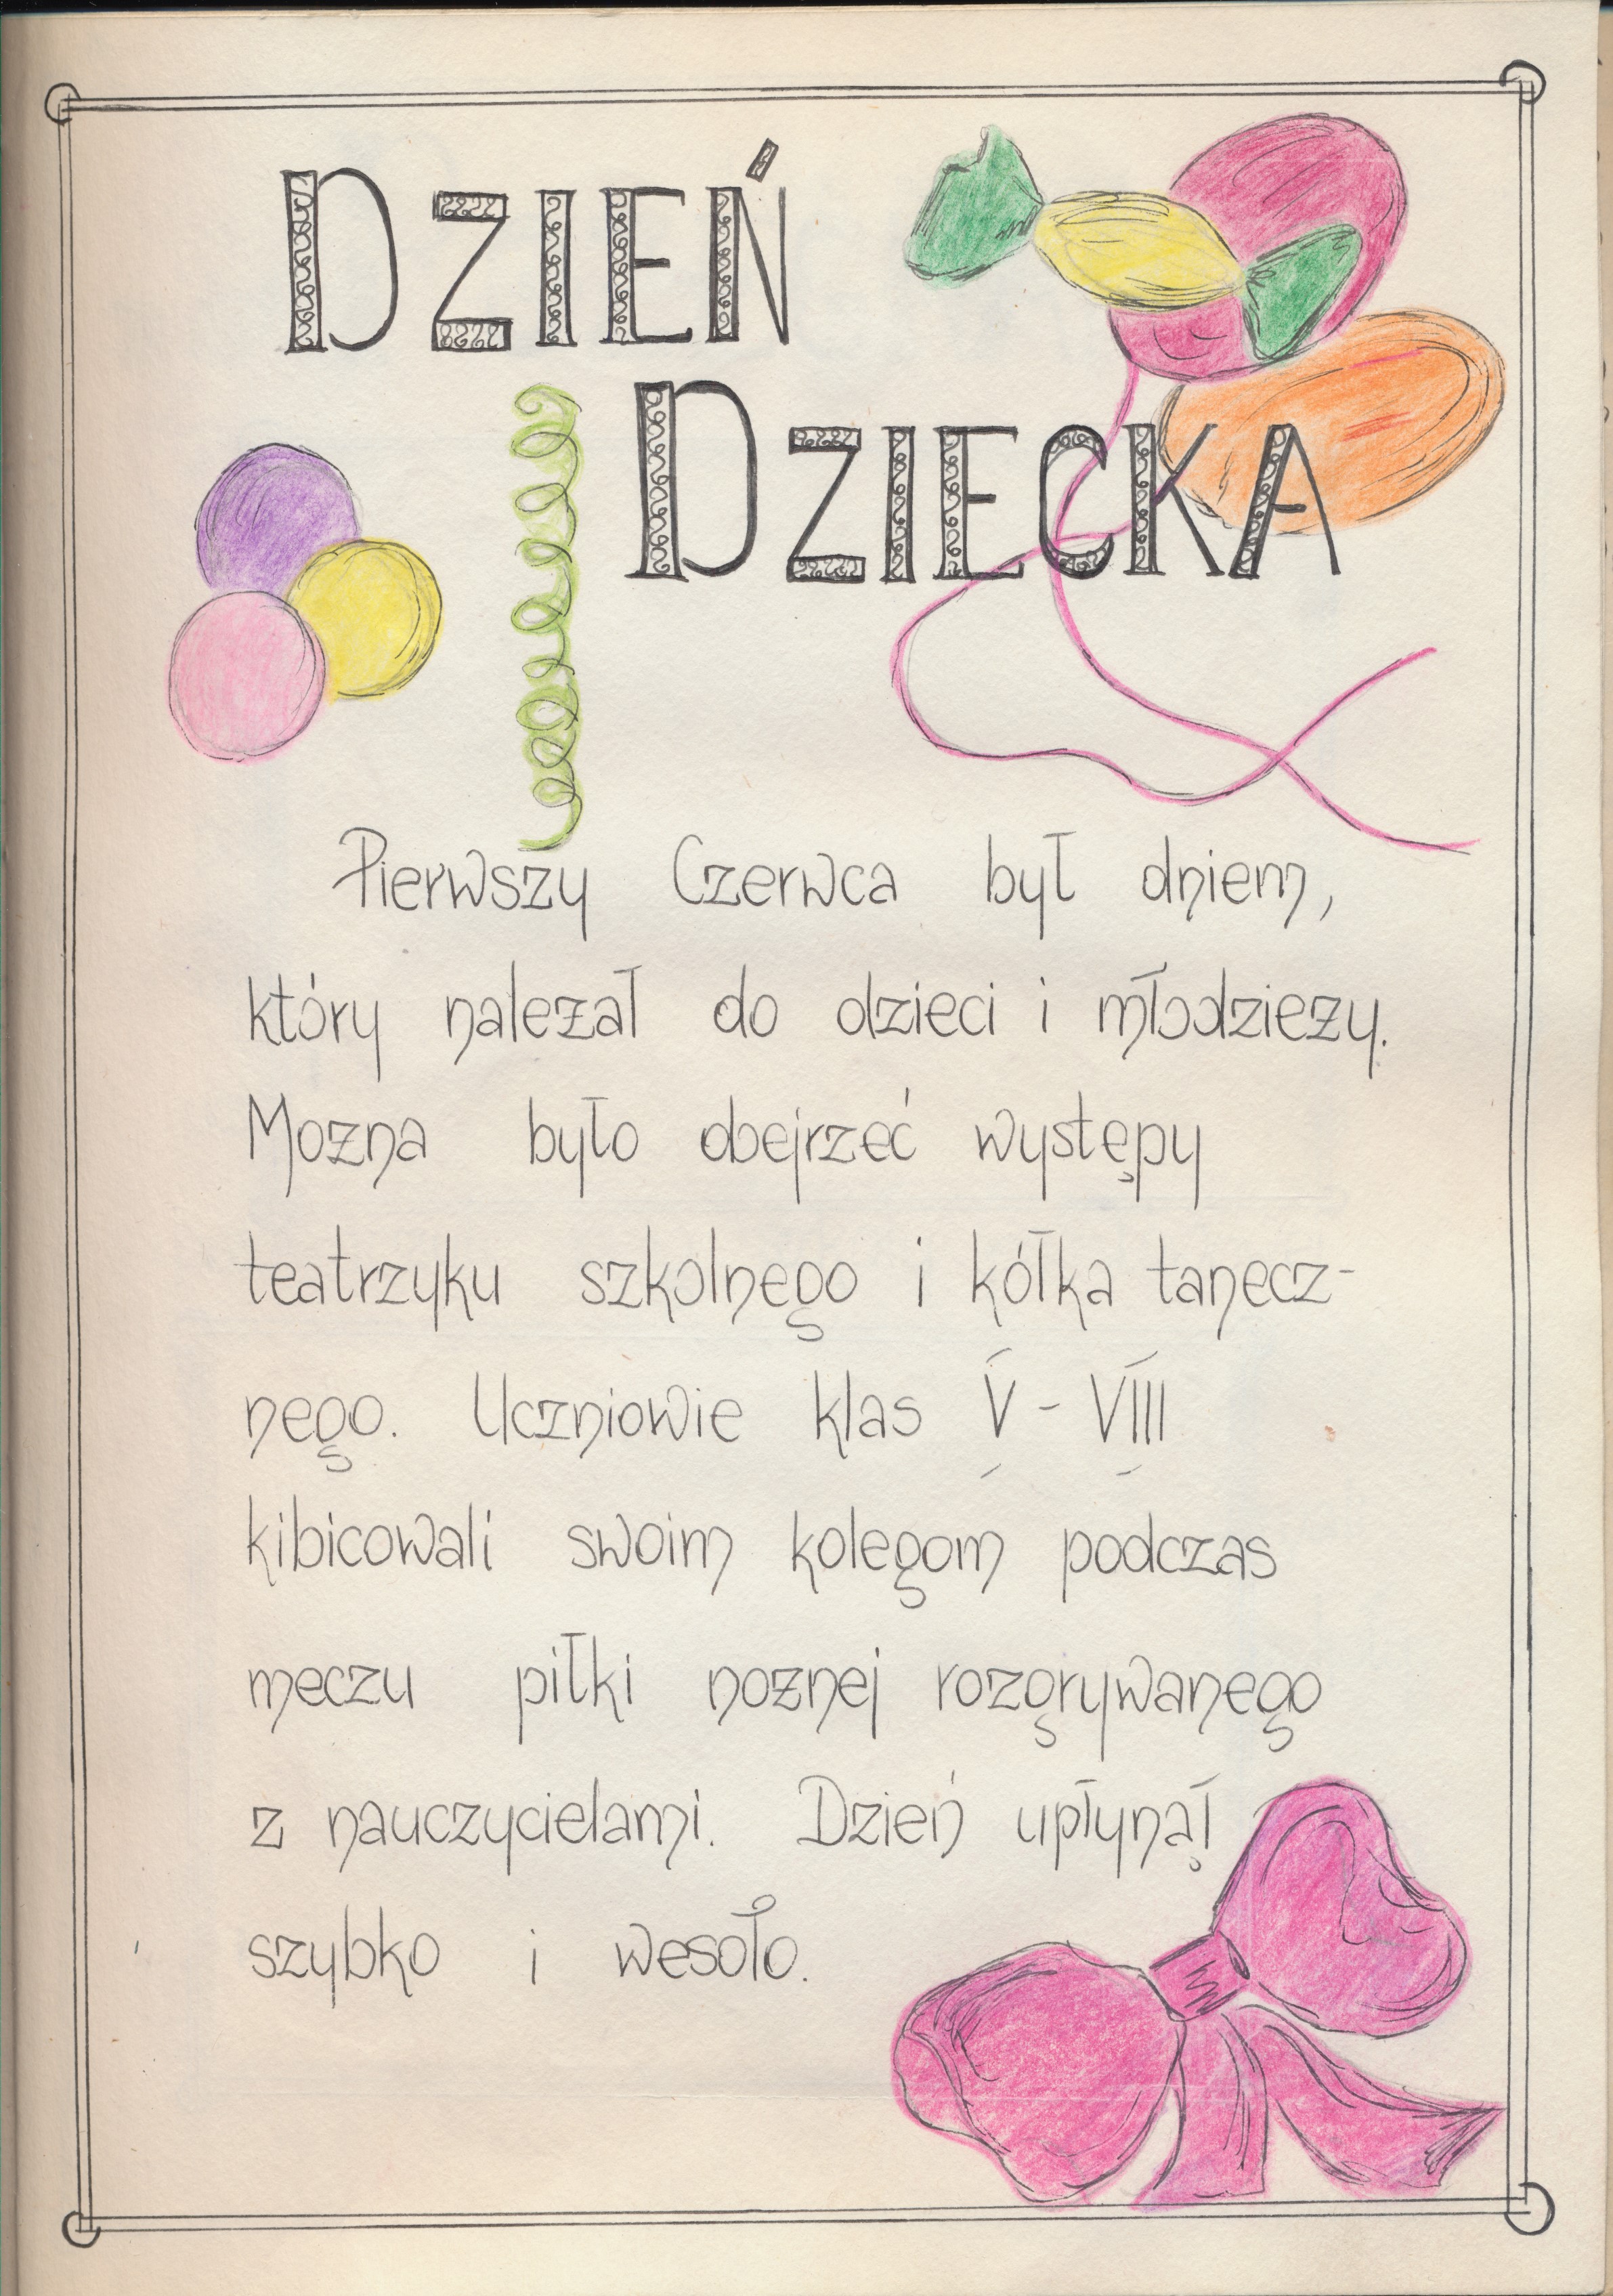 DZIEŃ
DZIECKA
Pierwszy Czerwca był dniem,
który należał do dzieci i młodzieży.
Można było obejrzeć występy
teatrzyku szkolnego i kółka tanecz-
nego. Uczniowie klas V - VIII
kibicowali swoim kolegom podczas
meczu piłki nożnej rozgrywanego
z nauczycielami. Dzień upłynął
szybko i wesoło.